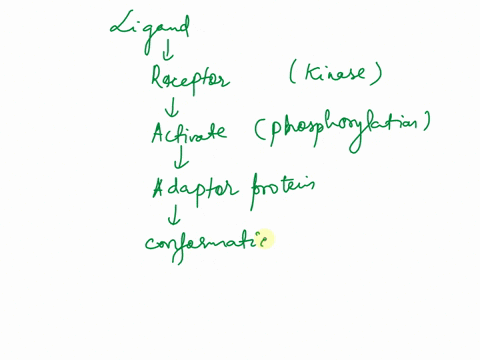 Ligand
Receptor (Kinase)
Activate (phosphorylation)
Adaptor protein
conformatic